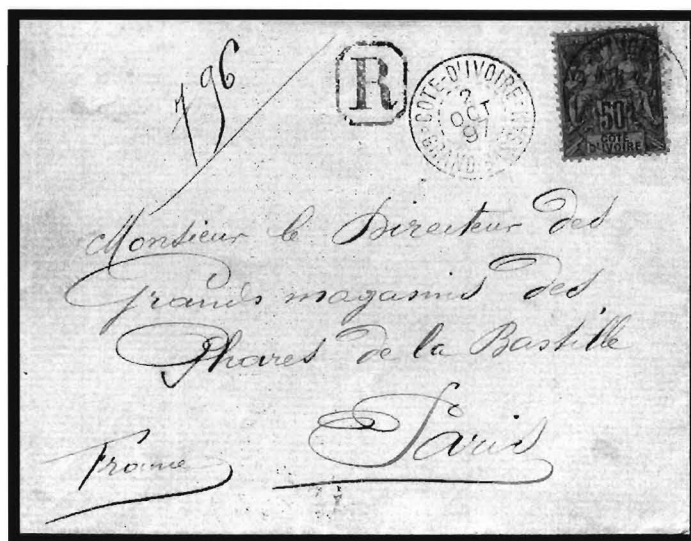 796
R
COTE-D'IVOIRE
GRAND-BASSAM
OCT
50
COTE
D'IVOIRE
Monsieur le Directeur des
Grands magasins des
Phares de la Bastille
Paris
France